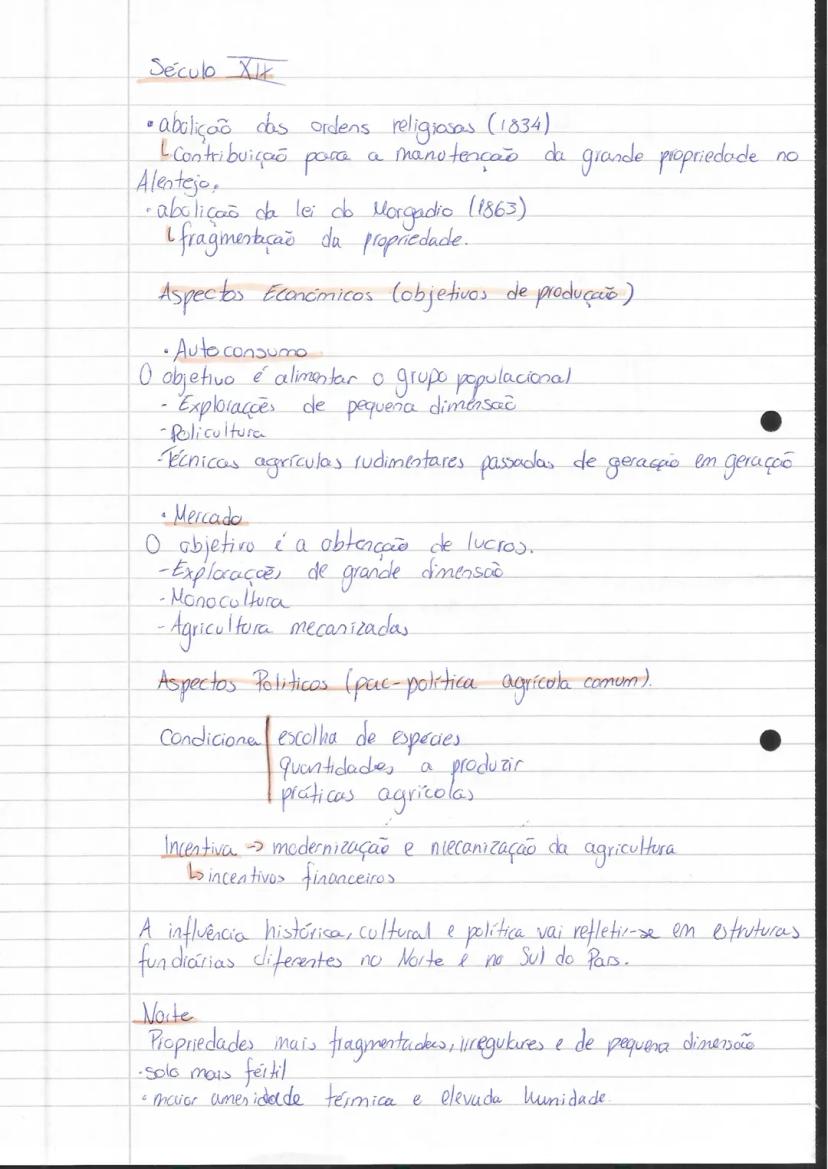 Século XIX
• abolição das ordens religiosas (1834)
↳ Contribuição para a manutenção da grande propriedade no
Alentejo.
• abolição da lei do Morgadio (1863)
↳ fragmentação da propriedade.
Aspectos Económicos (objetivos de produção)
• Autoconsumo
O objetivo é alimentar o grupo populacional
- Explorações de pequena dimensão
- Policultura
- Técnicas agrículas rudimentares passadas de geração em geração
• Mercado
O objetivo é a obtenção de lucros.
- Explorações de grande dimensão
- Monocultura
- Agricultura mecanizadas
Aspectos Políticos (pac-política agrícola comum).
Condiciona escolha de espécies
quantidades a produzir
práticas agrícolas
Incentiva → modernização e mecanização da agricultura
↳ incentivos financeiros
A influência histórica, cultural e política vai refletir-se em estruturas
fundiárias diferentes no Norte e no Sul do País.
Norte
Propriedades mais fragmentadas, irregulares e de pequena dimensão
• solo mais fértil
• maior amenidade térmica e elevada humidade.